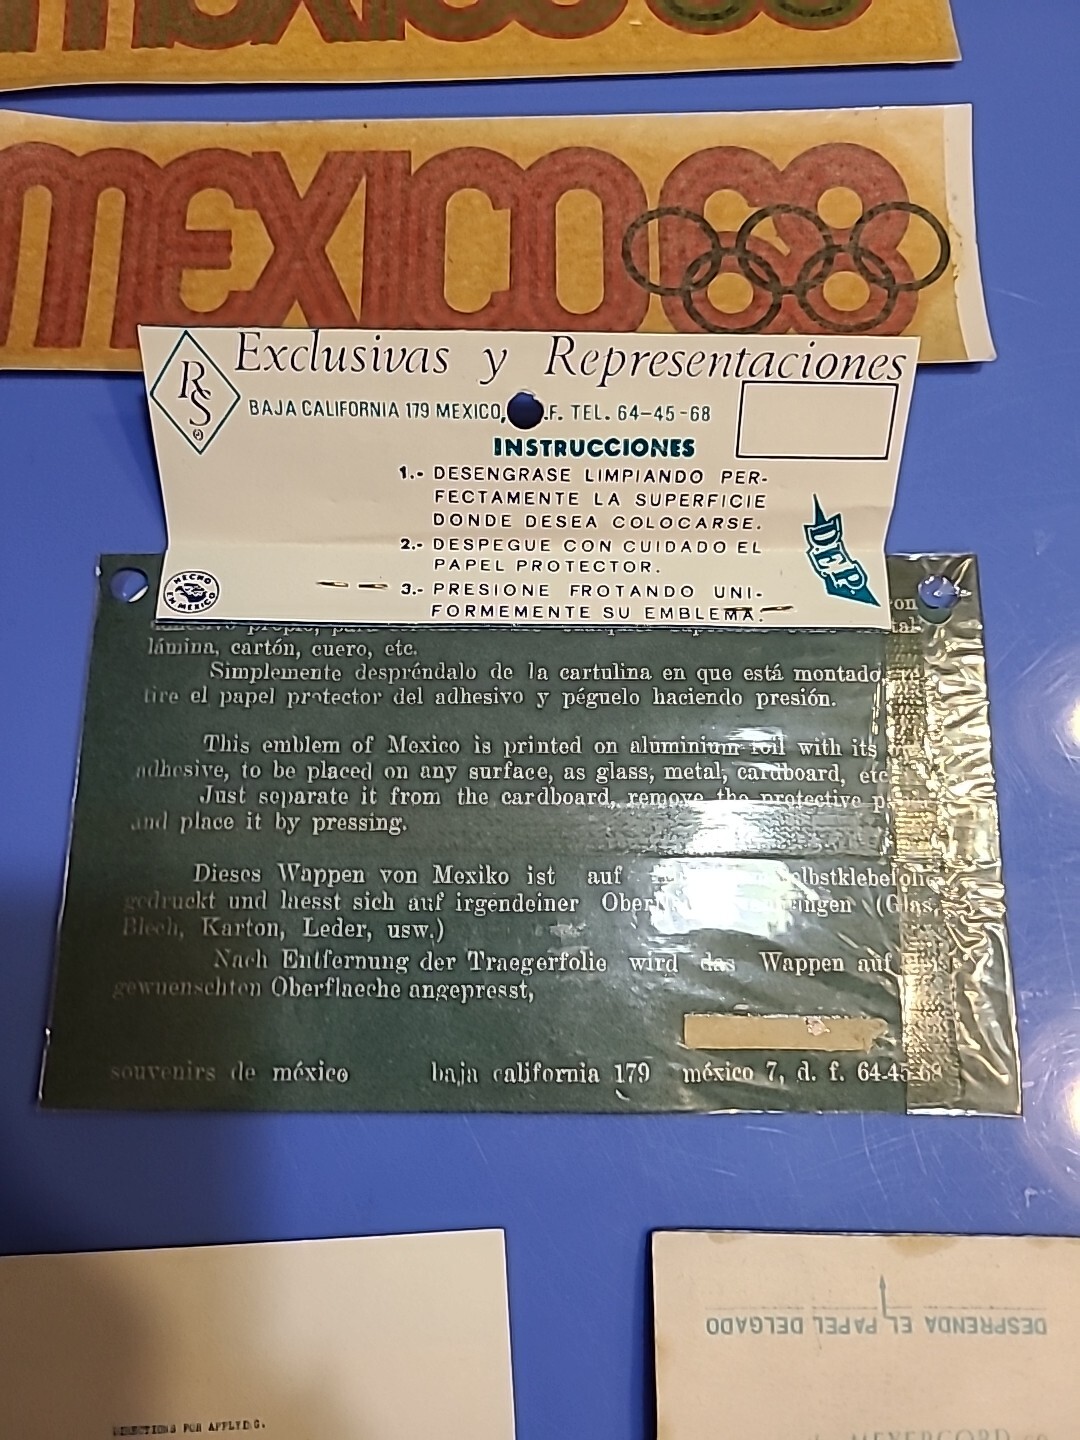 MEXICO 68
MEXICO 68
RS
Exclusivas y Representaciones
BAJA CALIFORNIA 179 MEXICO, .F. TEL. 64-45-68
INSTRUCCIONES
1.- DESENGRASE LIMPIANDO PER-
FECTAMENTE LA SUPERFICIE
DONDE DESEA COLOCARSE.
2.- DESPEGUE CON CUIDADO EL
PAPEL PROTECTOR.
3.- PRESIONE FROTANDO UNI-
FORMEMENTE SU EMBLEMA.
DEP.
HECHO
EN MEXICO
lámina, cartón, cuero, etc.
Simplemente despréndalo de la cartulina en que está montado,
tire el papel protector del adhesivo y péguelo haciendo presión.
This emblem of Mexico is printed on aluminium foil with its
adhesive, to be placed on any surface, as glass, metal, cardboard, etc
Just separate it from the cardboard, remove the protective
and place it by pressing.
Dieses Wappen von Mexiko ist auf
gedruckt und laesst sich auf irgendeiner (Glas,
Blech, Karton, Leder, usw.)
Nach Entfernung der Traegerfolie wird das Wappen auf
gewuenschten Oberflaeche angepresst,
souvenirs de méxico baja california 179 méxico 7, d. f. 64-45-68
DIRECTIONS FOR APPLYING.
DESPRENDA EL PAPEL DELGADO
MEYERCORD